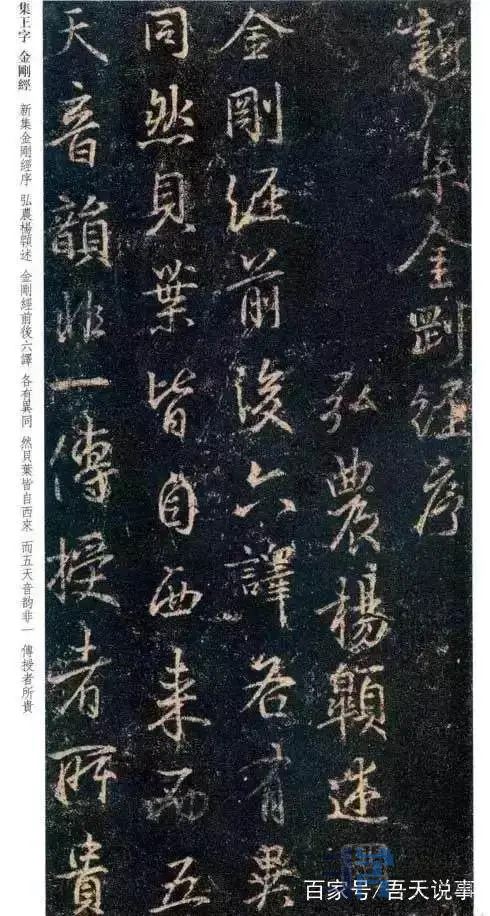 新集金剛經序
弘農楊顗述
金剛經前後六譯各有異
同然貝葉皆自西来而五
天音韻非一傳授者所貴
集王字 金剛經 新集金剛經序 弘農楊顗述 金剛經前後六譯 各有異同 然貝葉皆自西來 而五天音韵非一 傳授者所貴
百家号/吾天说事